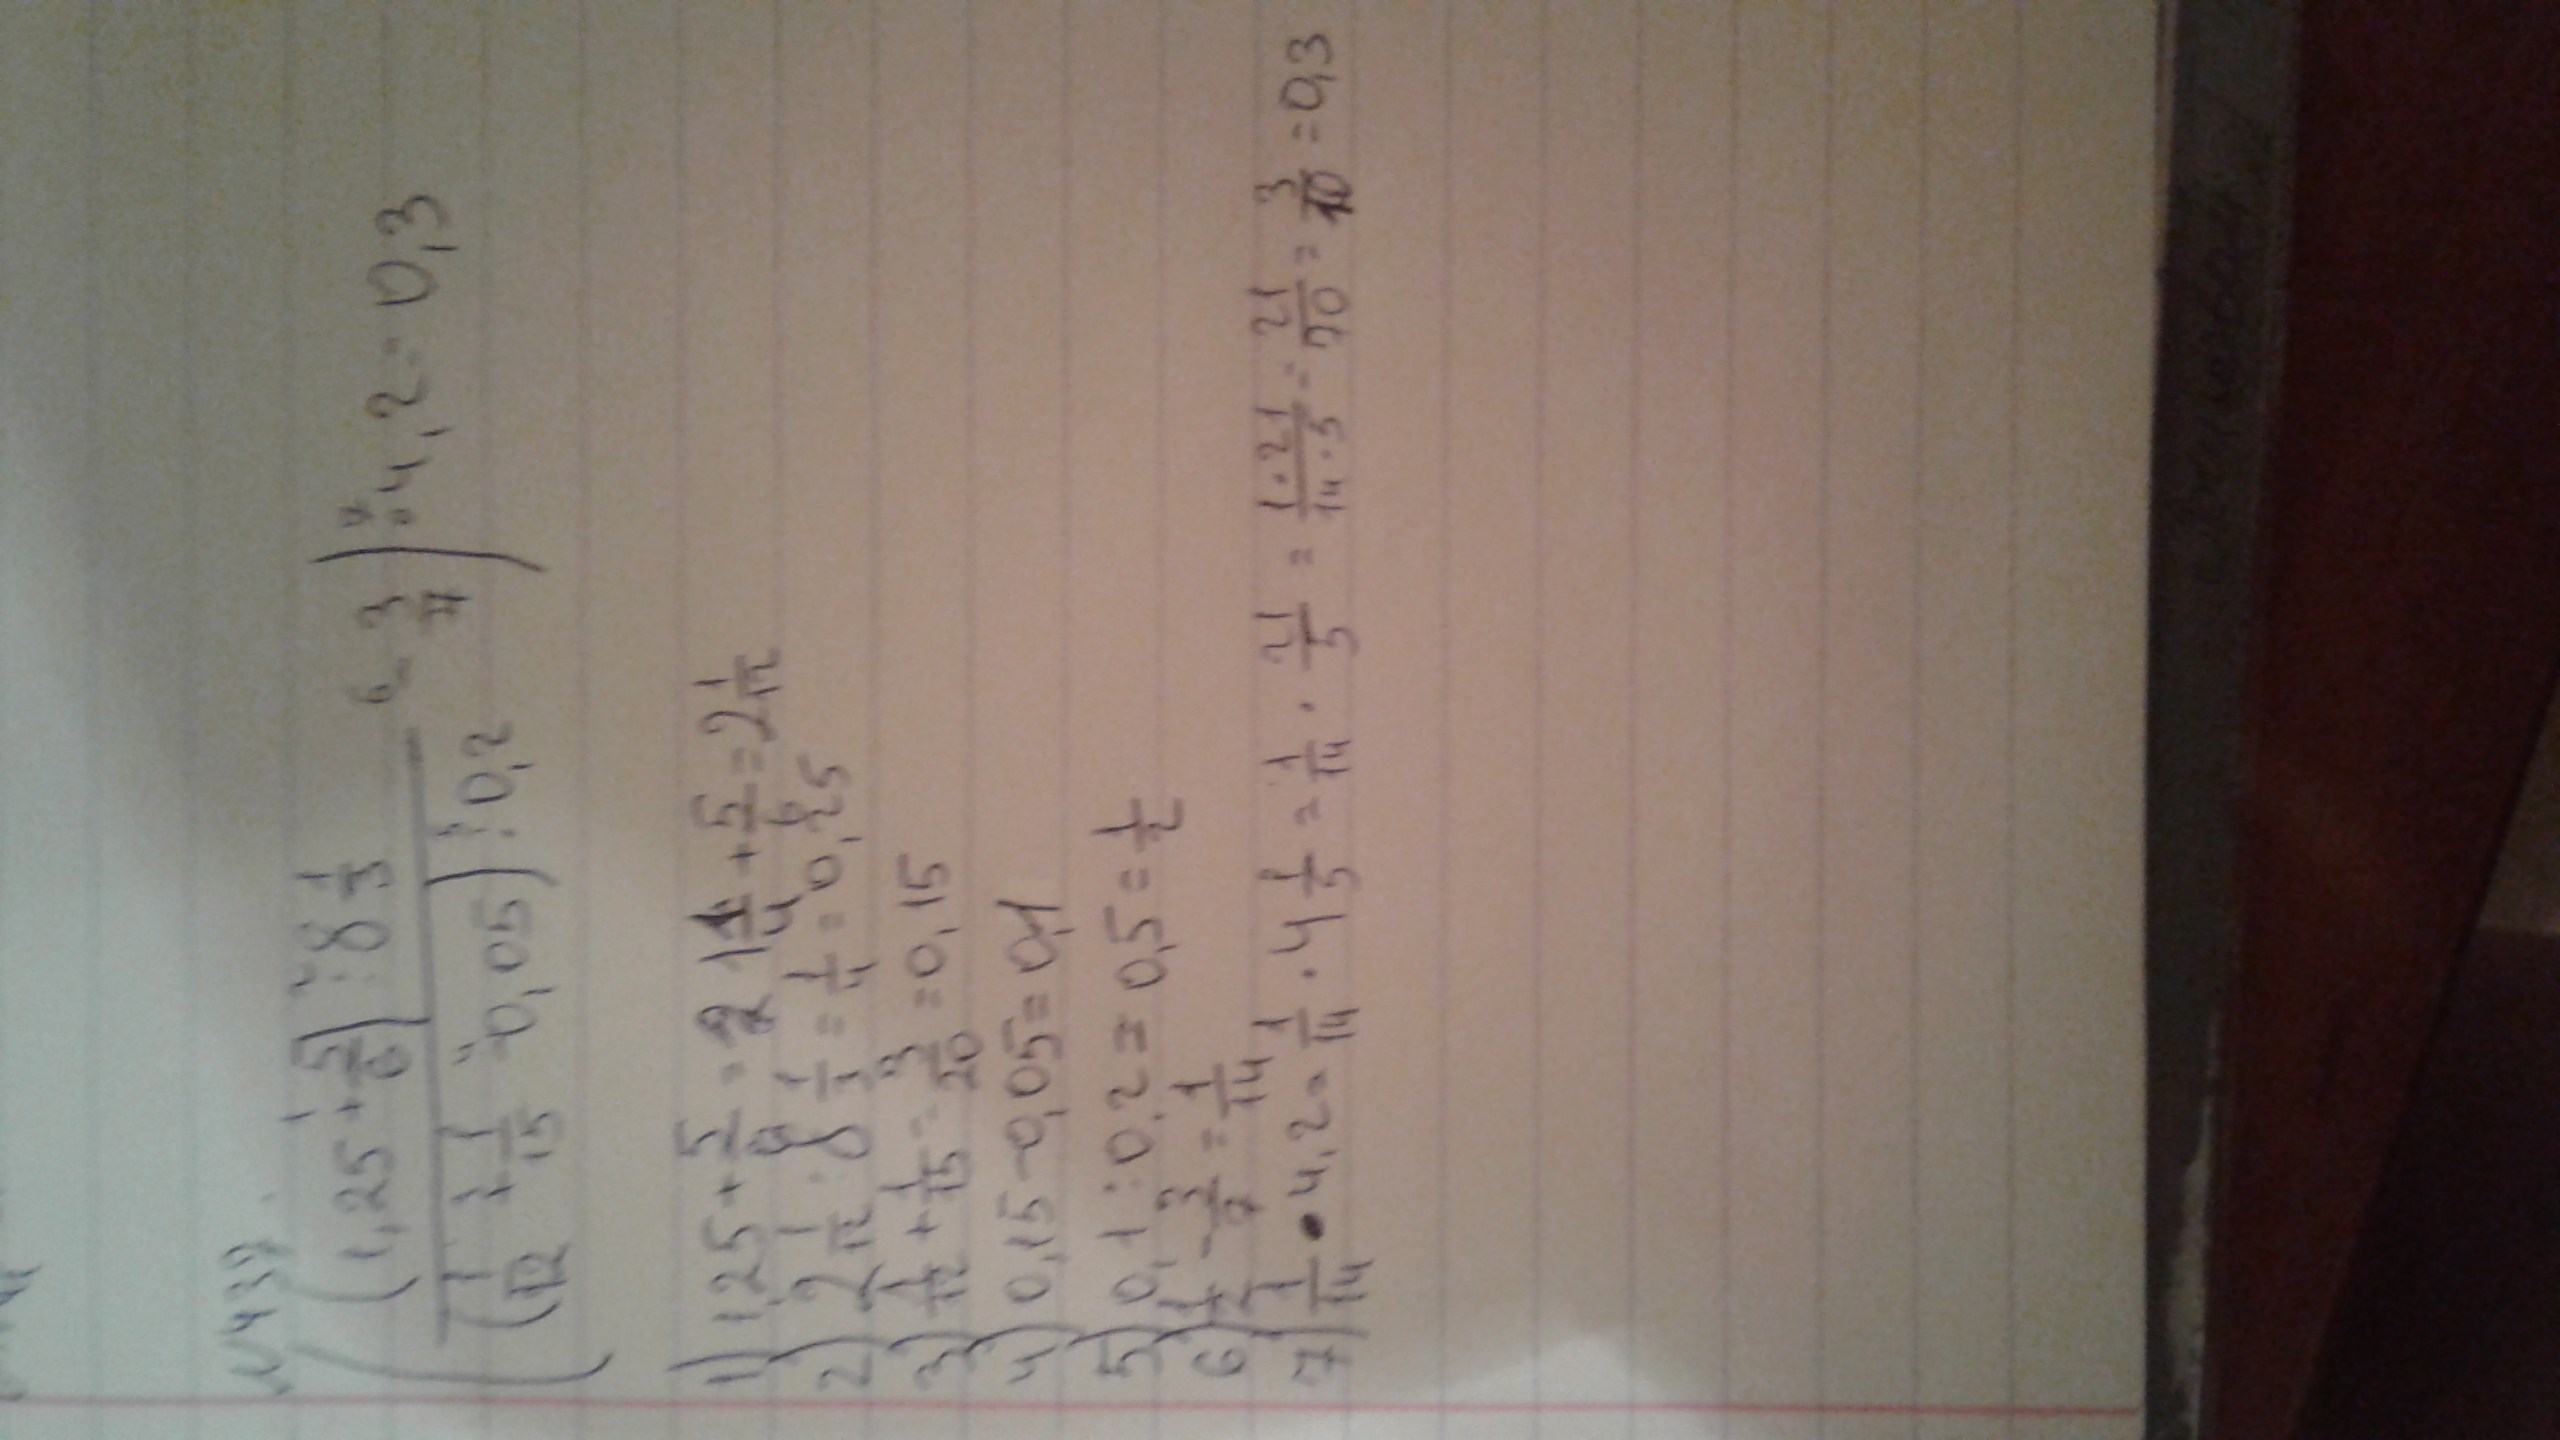 N437.
((1,25 + 5/6) : 8 1/3 / (1/12 + 1/15 - 0,05) : 0,2 - 3/7) · 4,2 = 0,3
1) 1,25 + 5/6 = 1 1/4 + 5/6 = 2 1/12
2) 2 1/12 : 8 1/3 = 1/4 = 0,25
3) 1/12 + 1/15 = 3/20 = 0,15
4) 0,15 - 0,05 = 0,1
5) 0,1 : 0,2 = 0,5 = 1/2
6) 1/2 - 3/7 = 1/14
7) 1/14 · 4,2 = 1/14 · 4 1/5 = 1/14 · 21/5 = 1·21/14·5 = 21/70 = 3/10 = 0,3